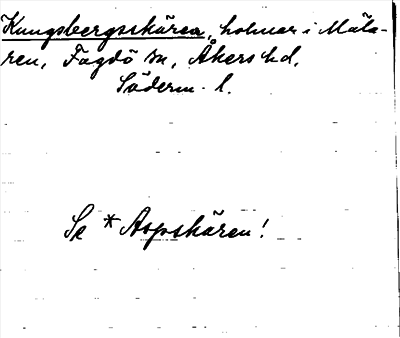 Kungsbergsskären, holmar i Mäla-
ren, Fogdö sn, Åkers hd,
Söderm. l.
Se * Aspskären!